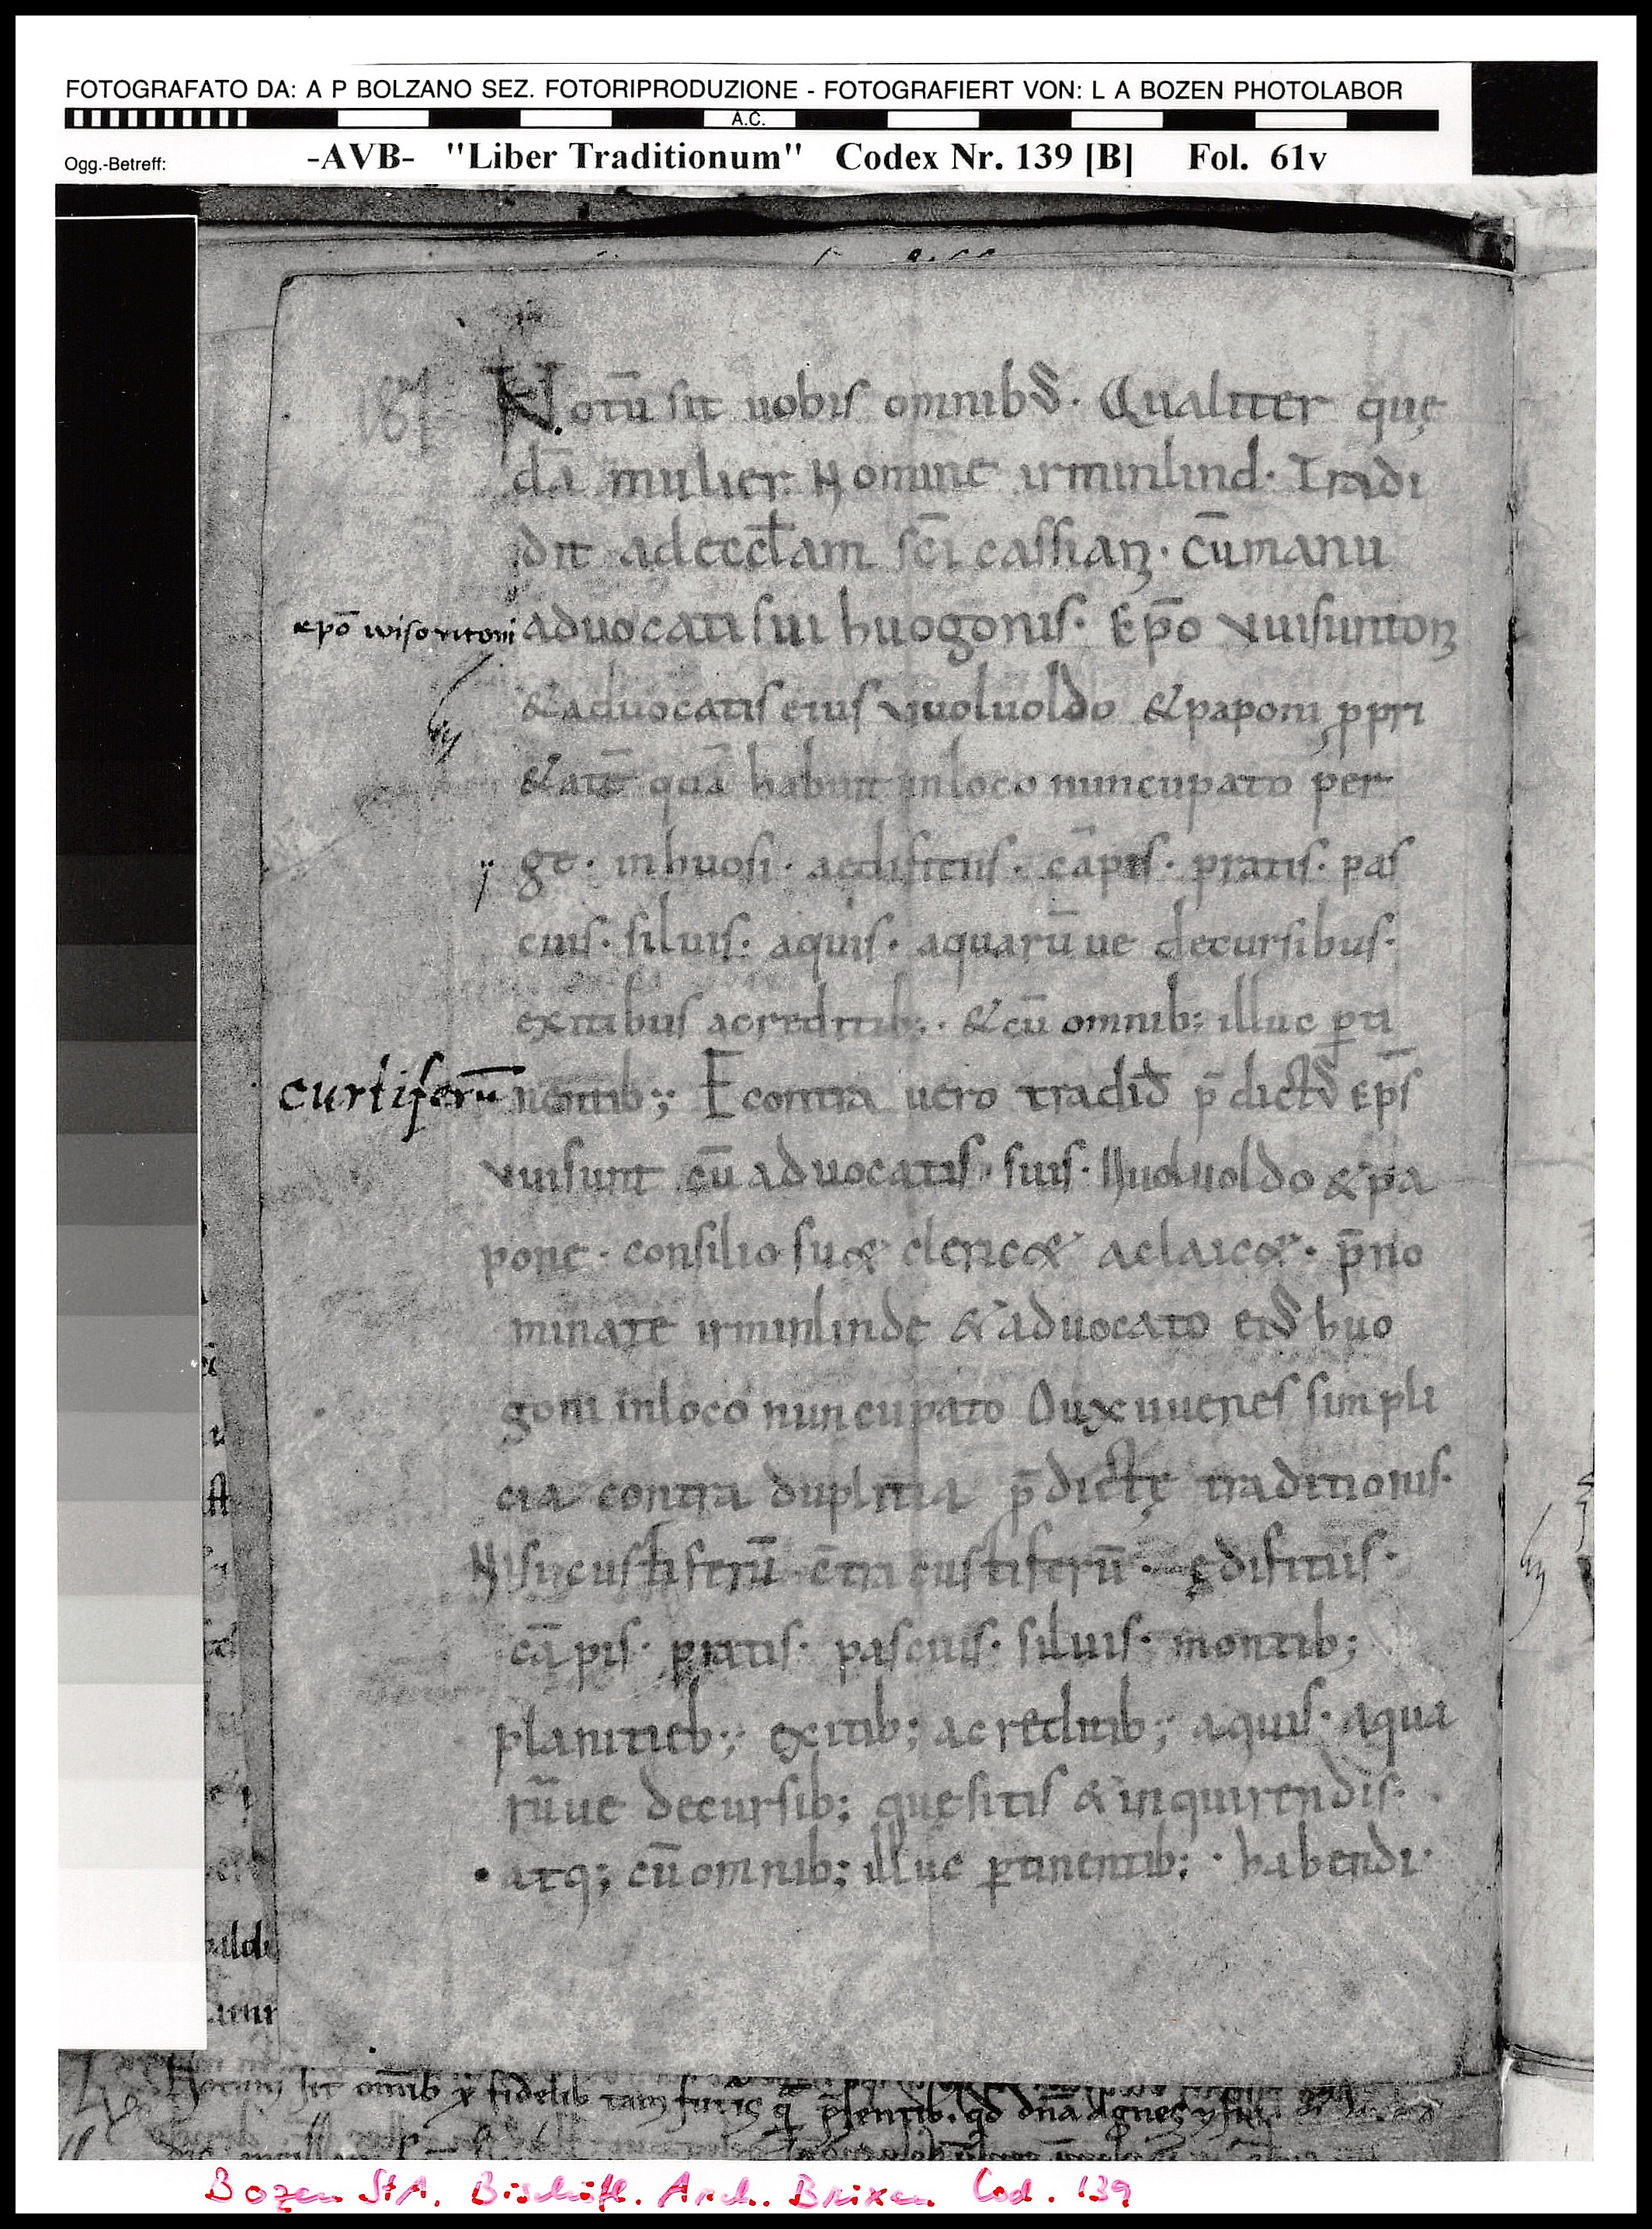 FOTOGRAFATO DA: A P BOLZANO SEZ. FOTORIPRODUZIONE - FOTOGRAFIERT VON: L A BOZEN PHOTOLABOR
A.C.
Ogg.-Betreff: -AVB- "Liber Traditionum" Codex Nr. 139 [B] Fol. 61v
187 Notū sit uobis omnib§. Qualiter quę
dā mulier Nomine irminlind. Tradi
dit adeccłam sc̄i cassiani. cūmanu
epō wisontoni aduocati sui huogonis. Ep̄o vuisuntoni
&aduocatis eius vuoluoldo &paponi ꝓpri
&atē quā habuit inloco nuncupato per
ge. inhuosi. aedificiis. cāpis. pratis. pas
cuis. siluis. aquis. aquarūue decursibus.
exitibus acreditib;. &cū omnib; illuc ꝑti
curtiferū nentib;; Econtra uero tradid̄ p̄dict§ ep̄s
vuisunt cū aduocatis suis. Uuoluoldo &pa
pone. consilio su& cleric& aclaic&. p̄no
minate irminlinde &aduocato ei§ huo
goni inloco nuncupato Duxuuenes simpli
cia contra duplitia p̄dictę traditionis.
Nisi custiferū c̄tra custiferū. ędifitiis.
cāpis. pratis. pascuis. siluis. montib;
planitieb;; exitib; ac reditib;; aquis. aqua
rūue decursib; quęsitis &inquirendis.
atq; cūomnib; illuc ꝑtinentib;. habendi.
Notum sit omīb xp̄ fidelib tam futuris q̄ p̄sentib. qd dn̄a Agnes
Bozen StA. Bischöfl. Arch. Brixen Cod. 139